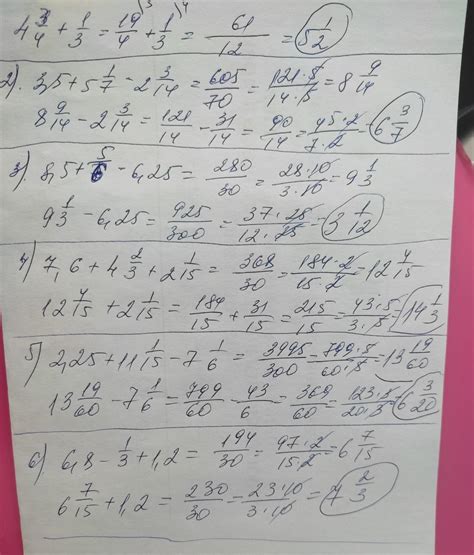 4 3/4 + 1/3 = 19/4 + 1/3 = 61/12 = 5 1/2
2). 3,5 + 5 1/7 - 2 3/14 = 605/70 = 121·5/14·5 = 8 9/14
8 9/14 - 2 3/14 = 121/14 - 31/14 = 90/14 = 45·2/7·2 = 6 3/7
3) 8,5 + 5/6 - 6,25 = 280/30 = 28·10/3·10 = 9 1/3
9 1/3 - 6,25 = 925/300 = 37·25/12·25 = 3 1/12
4) 7,6 + 4 2/3 + 2 1/15 = 368/30 = 184·2/15·2 = 12 4/15
12 4/15 + 2 1/15 = 184/15 + 31/15 = 215/15 = 43·5/3·5 = 14 1/3
5) 2,25 + 11 1/15 - 7 1/6 = 3995/300 = 799·5/60·5 = 13 19/60
13 19/60 - 7 1/6 = 799/60 - 43/6 = 369/60 = 123·3/20·3 = 6 3/20
6) 6,8 - 1/3 + 1,2 = 194/30 = 97·2/15·2 = 6 7/15
6 7/15 + 1,2 = 230/30 = 23·10/3·10 = 7 2/3